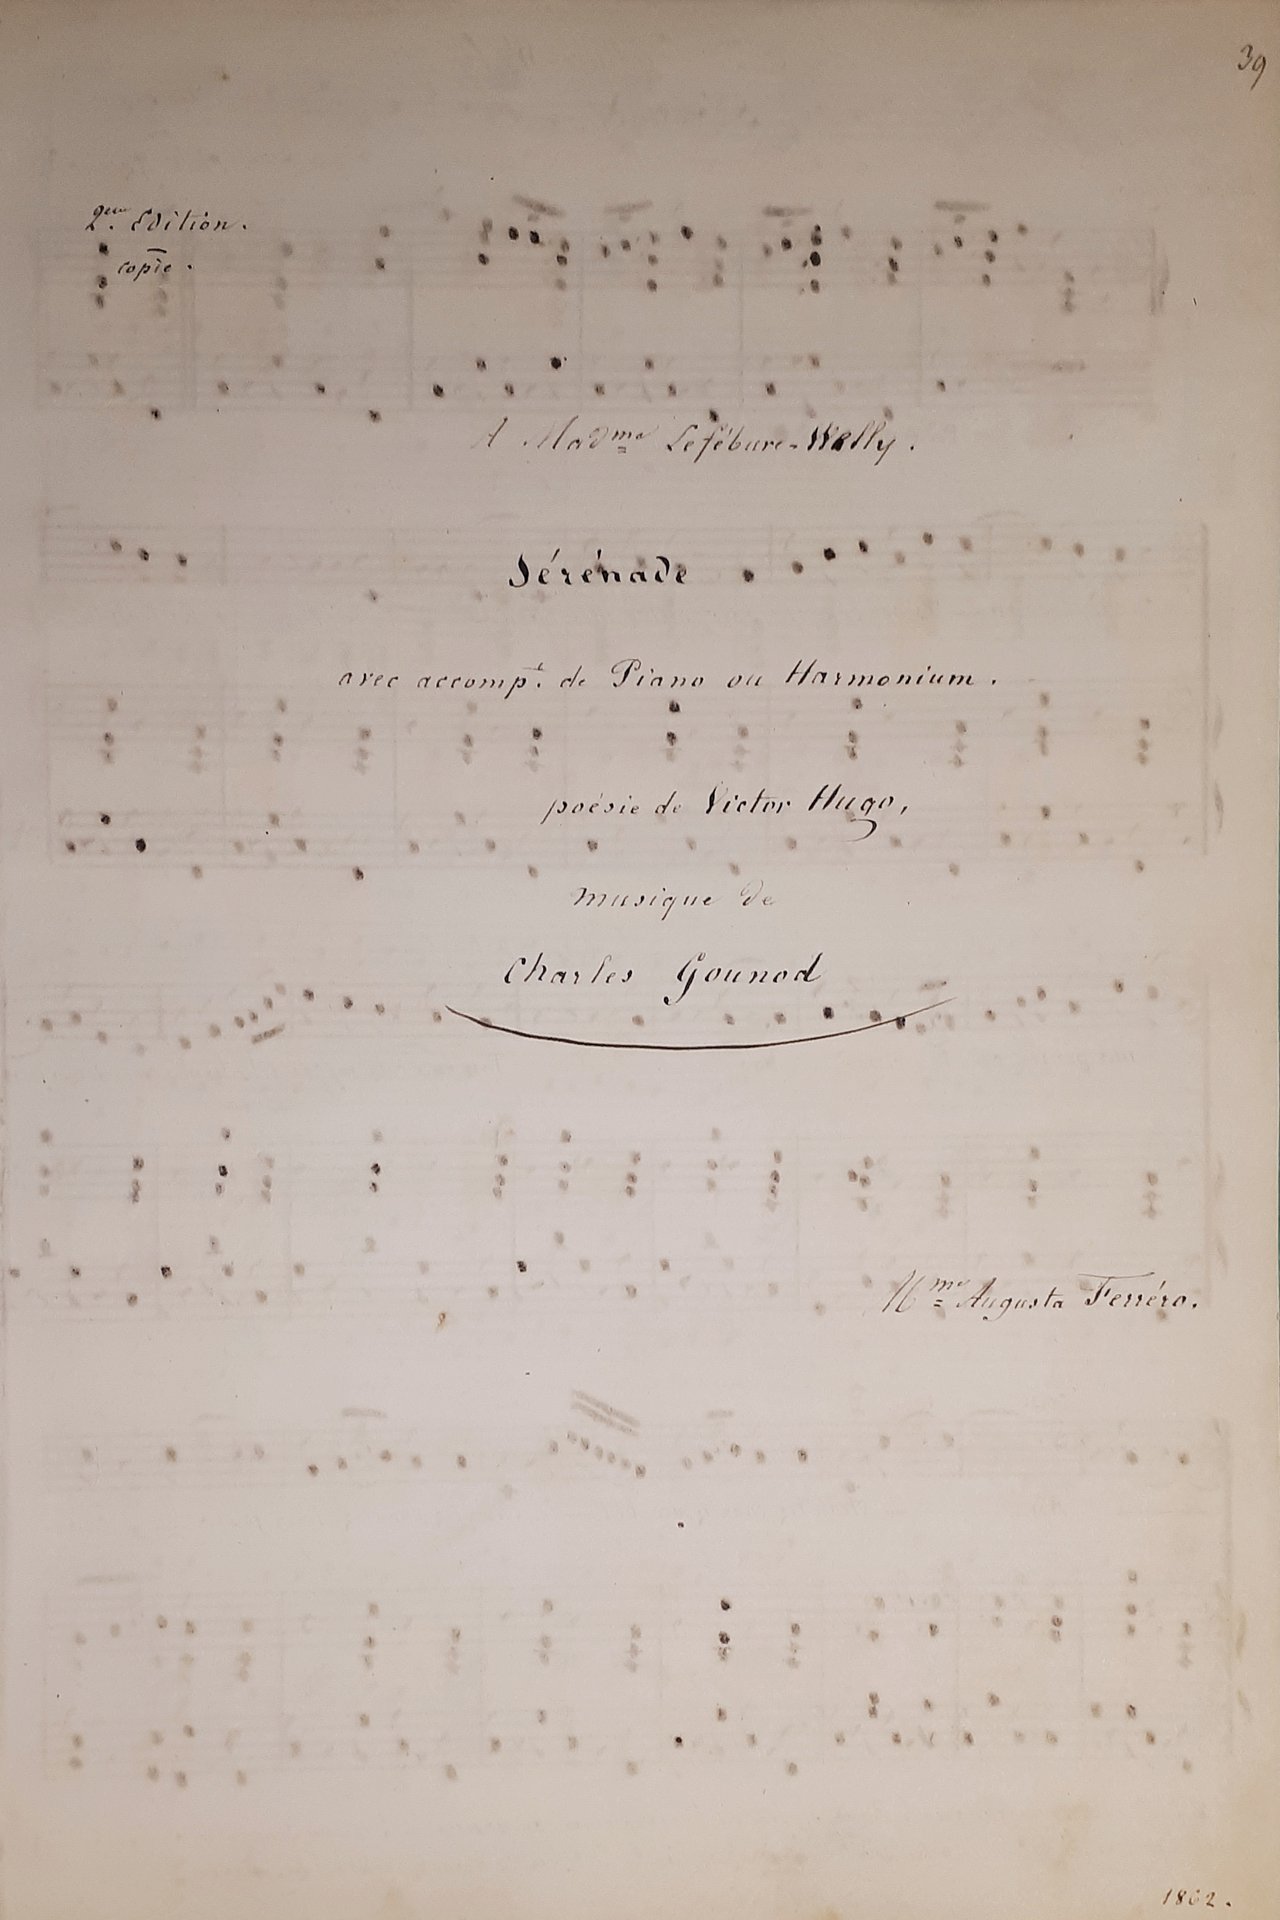 39
2eme Edition.
copie.
A Madme Lefébure-Welly.
Sérénade
avec accompt. de Piano ou Harmonium.
poésie de Victor Hugo,
musique de
Charles Gounod
Mme Augusta Ferréro.
1862.